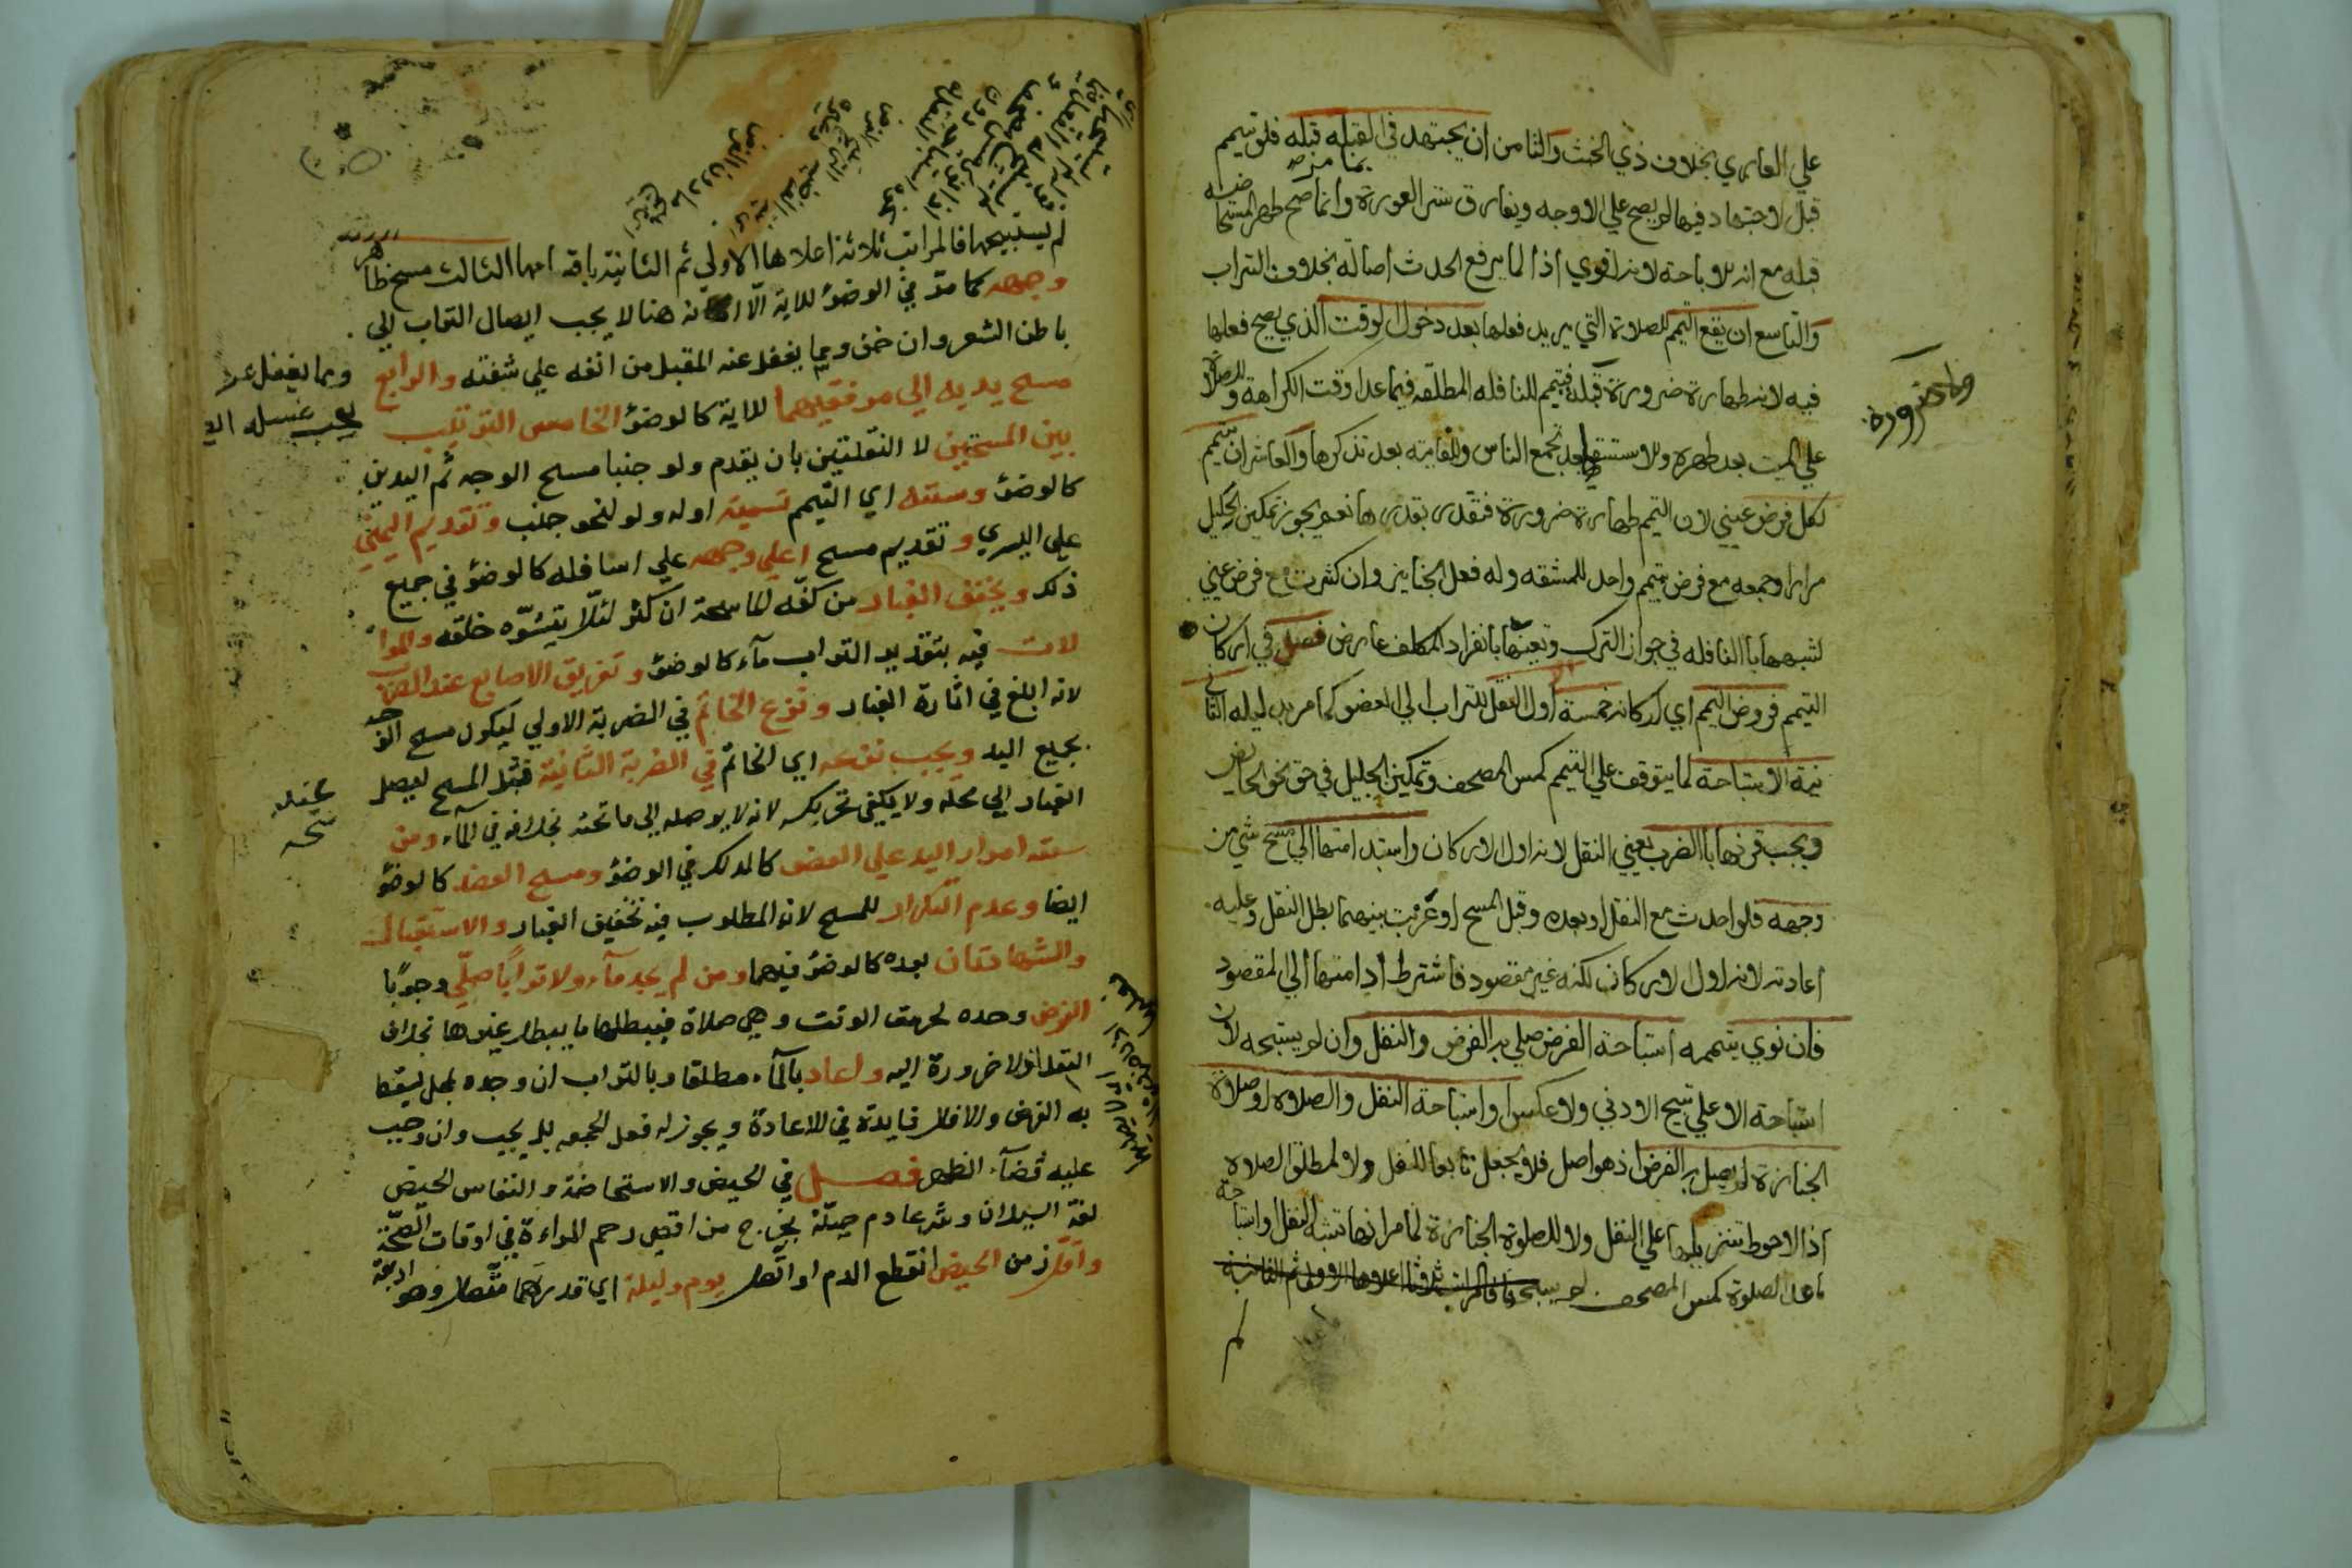 علي العاري بخلاف ذي الخبث والثامن ان يجتهد في القبله قبله فلو تيمم
قبل الاجتهاد فيها لم يصح علي الاوجه ويفارق ستر العورة وانما صح طهر المستحاضه
قبله مع انه للاباحة لانه اقوي اذ الما يرفع الحدث اصالة بخلاف التراب
والتاسع ان يقع التيمم للصلاة التي يريد فعلها بعد دخول الوقت الذي يصح فعلها
فيه لانه طهارة ضرورة قبله فيتيمم للنافله المطلقه فيما عدا وقت الكراهة وللصلاة
علي الميت بعد طهره وللاستسقا بعد تجمع الناس وللفايته بعد تذكرها والعاشر ان يتيمم
لكل فرض عيني لان التيمم طهارة ضرورة فتقدر بقدرها نعم يجوز تمكين الحليل
مرارا وجمعه مع فرض بتيمم واحد للمشقه وله فعل الجنايز وان كثرت مع فرض عيني
لشبهها بالنافله في جواز الترك وتعينها بانفراد المكلف عارض فصل في اركان
التيمم فروض التيمم اي اركانه خمسة اول النقل للتراب الي العضو كما مر بدليله الثاني
نية الاستباحة لما يتوقف علي التيمم كمس المصحف وتمكين الحليل في حق نحو الحايض
ويجب قرنها بالضرب يعني النقل لانه اول الاركان واستدامتها الي مسح شي من
وجهه فلو احدث مع النقل او بعده وقبل المسح او عزبت بينهما بطل النقل وعليه
اعادته لانه اول الاركان لكنه غير مقصود فاشترط ادامتها الي المقصود
فان نوي بتيممه استباحة الفرض صلي به الفرض والنفل وان لم يستبحه لان
استباحة الاعلي تبيح الادني ولا عكس او استباحة النفل والصلاة او صلاة
الجنازة لم يصل به الفرض اذ هو اصل فلا يجعل تابعا للنفل ولا لمطلق الصلاة
اذ الاحوط تنزيلها علي النفل ولا للصلوة الجنازة لما مر انها تشبه النفل او استباحة
ما عدا الصلوة كمس المصحف لم يستبحها فالمراتب ثلاثة اعلاها الاولي ثم الثانية
لم يستبيحها فالمراتب ثلاثة اعلاها الاولي ثم الثانية باقه امها الثالث مسح ظاهر
وجهه كما مر في الوضؤ للاية الا انه هنا لا يجب ايصال التراب الي
باطن الشعر وان خف ومما يغفل عنه المقبل من انفه علي شفته والرابع
مسح يديه الي مرفقيهما للاية كالوضؤ الخامس الترتيب
بين المسحتين لا النقلتين بان يقدم ولو جنبا مسح الوجه ثم اليدين
كالوضؤ وسننه اي التيمم تسمية اوله ولو لنحو جنب وتقديم اليمني
علي اليسري وتقديم مسح اعلي وجهه علي اسافله كالوضؤ في جميع
ذلك ويخفف الغبار من كفه الماسحة ان كثر لئلا يتشوه خلقه والموا
لات فيه بتقدير التراب مآء كالوضؤ وتفريق الاصابع عند الضرب
لانه ابلغ في اثارة الغبار ونزع الخاتم في الضربة الاولي ليكون مسح الوجه
بجميع اليد ويجب نزعه اي الخاتم في الضربة الثانية قبل المسح ليصل
الغبار الي محله ولا يكفي تحريكه لانه لا يوصله الي ما تحته بخلافه في المآء ومن
سننه امرار اليد علي العضو كالدلك في الوضؤ ومسح العضد كالوضؤ
ايضا وعدم التكرار للمسح لان المطلوب فيه تخفيف الغبار والاستقبال
والشهادتان بعده كالوضؤ فيهما ومن لم يجد مآء ولا ترابا صلي وجوبا
الفرض وحده لحرمة الوقت وهي صلاة فيبطلها ما يبطل غيرها بخلاف
النفل اذ لا ضرورة اليه واعاد بالمآء مطلقا وبالتراب ان وجده بمحل يسقط
به الفرض والا فلا فايدة في الاعادة ويجوز له فعل الجمعه بل يجب وان وجب
عليه قضآء الظهر فصل في الحيض والاستحاضة والنفاس الحيض
لغة السيلان وشرعا دم جبلة يخرج من اقصي رحم المراءة في اوقات الصحة
واقل زمن الحيض انقطع الدم او اتصل يوم وليلة اي قدرهما متصلا وهو اربعة
ومما يغفل عنه
يجب غسله